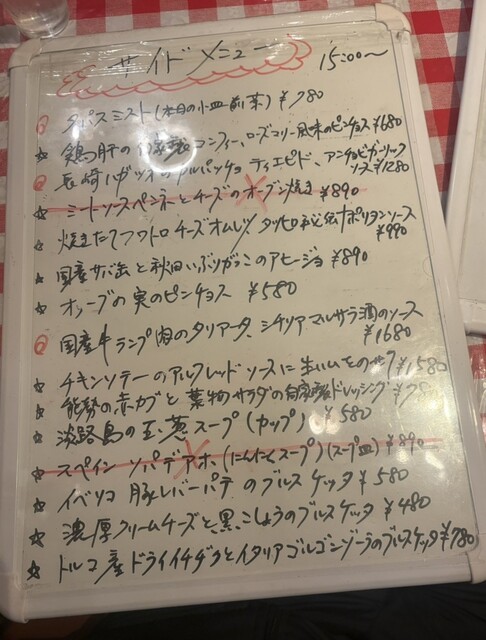 サイドメニュー 15:00〜
タパスミスト(本日の小皿前菜) ¥780
☆ 鶏肝の自家製コンフィ、ローズマリー風味のピンチョス ¥680
長崎ハガツオのカルパッチョ ティエピド、アンチョビガーリック
ソース ¥1280
☆ ミートソースペンネとチーズのオーブン焼き ¥890
☆ 焼きたてフワトロチーズオムレツ タツヒロ秘伝ナポリタンソース
¥990
☆ 国産サバ缶と秋田いぶりがっこのアヒージョ ¥890
☆ オリーブの実のピンチョス ¥580
国産牛ランプ肉のタリアータ、シチリアマルサラ酒のソース
¥1680
☆ チキンソテーのアルフレッドソースに生ハムをのせて ¥1580
☆ 能勢の赤カブと葉物サラダの自家製ドレッシング
☆ 淡路島の玉葱スープ(カップ) ¥580
☆ スペイン ソパデアホ(にんにくスープ)(スープ皿) ¥890
☆ イベリコ豚レバーパテのブルスケッタ ¥580
☆ 濃厚クリームチーズと黒こしょうのブルスケッタ ¥480
☆ トルコ産ドライイチヂクとイタリアゴルゴンゾーラのブルスケッタ ¥780